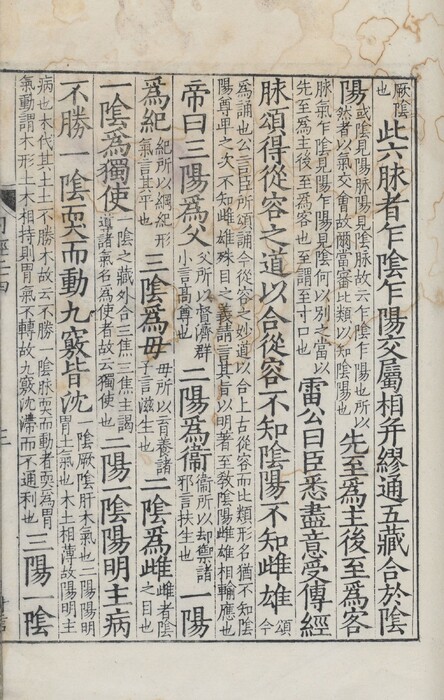 厥陰也此六脉者乍陰乍陽交屬相并繆通五藏合於陰
陽或陰見陽脉陽見陰脉故云乍陰乍陽也所以然者以氣交會故爾當審比類以知陰陽也先至為主後至為客
脉氣乍陰見陽乍陽見陰何以別之當以先至為主後至為客也至謂至寸口也雷公曰臣悉盡意受傳經
脉頌得從容之道以合從容不知陰陽不知雌雄頌今
為誦也公言臣所頌誦今從容之妙道以合上古從容而比類形名猶不知陰陽尊卑之次不知雌雄殊目之義請言其旨以明著至教陰陽雌雄相輸應也
帝曰三陽為父父所以督濟群小言高尊也二陽為衞衞所以却禦諸邪言扶生也一陽
為紀紀所以綱紀形氣言其平也三陰為母母所以育養諸子言滋生也二陰為雌雌者陰之目也
一陰為獨使一陰之藏外合三焦三焦主謁導諸氣名為使者故云獨使也二陽一陰陽明主病
不勝一陰耎而動九竅皆沈一陰厥陰肝木氣也二陽陽明胃土氣也木土相薄故陽明主
病也木代其土土不勝木故云不勝一陰脉耎而動者耎為胃氣動謂木形土木相持則胃氣不轉故九竅沈滯而不通利也三陽一陰